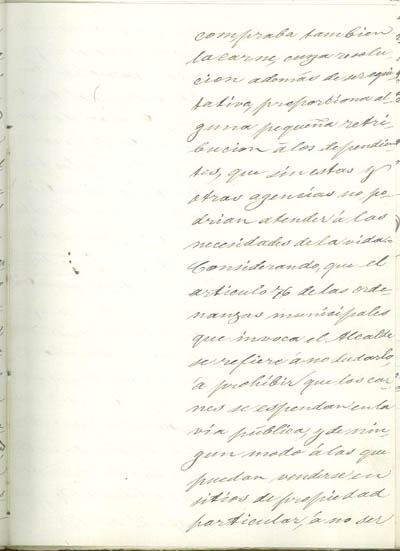 compraba tambien
la carne, cuya resolu-
cion además de ser equi-
tativa, proporciona al-
guna pequeña retri-
bucion á los dependien-
tes, que sin estas y
otras agencias no po-
drian atender á las
necesidades de la vida.
Considerando, que el
articulo 76 de las orde-
nanzas municipales
que invoca el Alcalde
se refiere á no dudarlo,
á prohibir que las car-
nes se espendan en la
via pública, y de nin-
gun modo á las que
puedan venderse en
sitios de propiedad
particular, á no ser